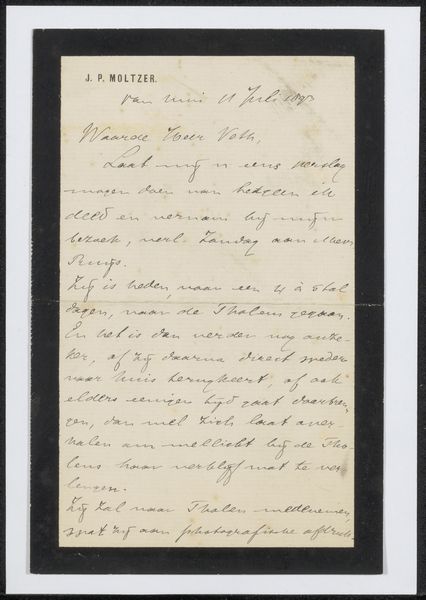 J. P. MOLTZER.
van huis 11 Juli 1893
Waarde Heer Veth,
Laat mij u eens verslag
mogen doen van hetgeen ik
deed en vernam bij mijn
bezoek, verl. Zondag aan Mevr.
Ruijs.
Zij is heden, voor een 4 à 5tal
dagen, naar de Tholens gegaan.
En het is dan verder nog onze-
ker, of zij daarna direct weder
naar huis terugkeert, of ook
elders eenigen tijd gaat doorbren-
gen, dan wel zich laat over-
halen om wellicht bij de Tho-
lens haar verblijf wat te ver-
lengen.
Zij zal naar Tholen medenemen,
wat zij aan photografische afdruk-